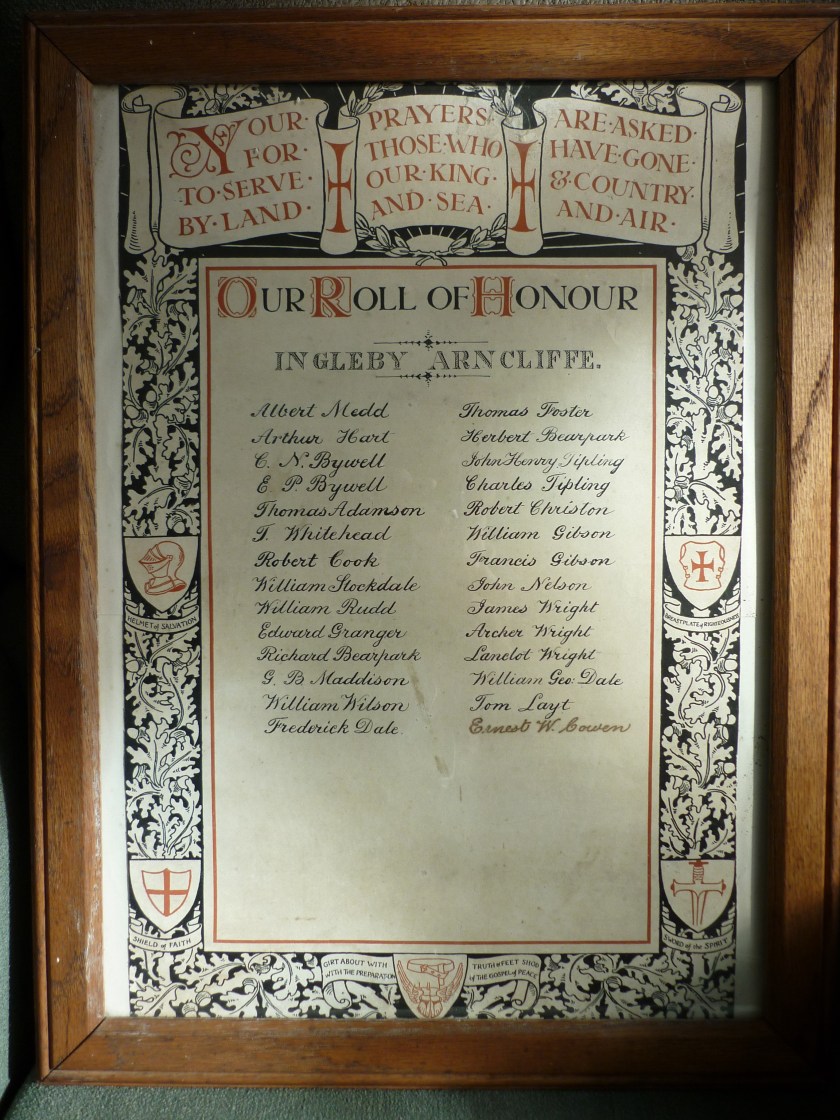 YOUR· PRAYERS· ARE·ASKED·
FOR· THOSE·WHO HAVE·GONE·
TO·SERVE· OUR·KING· &·COUNTRY·
BY·LAND· AND·SEA· AND·AIR·
OUR ROLL OF HONOUR
INGLEBY ARNCLIFFE.
Albert Medd
Arthur Hart
C. N. Bywell
E. P. Bywell
Thomas Adamson
T. Whitehead
Robert Cook
William Stockdale
William Rudd
Edward Granger
Richard Bearpark
G. B Maddison
William Wilson
Frederick Dale.
Thomas Foster
Herbert Bearpark
John Henry Tipling
Charles Tipling
Robert Christon
William Gibson
Francis Gibson
John Nelson
James Wright
Archer Wright
Lancelot Wright
William Geo: Dale
Tom Layt
Ernest W. Cowen
HELMET of SALVATION
BREASTPLATE of RIGHTEOUSNESS
SHIELD of FAITH
SWORD of the SPIRIT
GIRT ABOUT WITH TRUTH & FEET SHOD
WITH THE PREPARATION of THE GOSPEL of PEACE